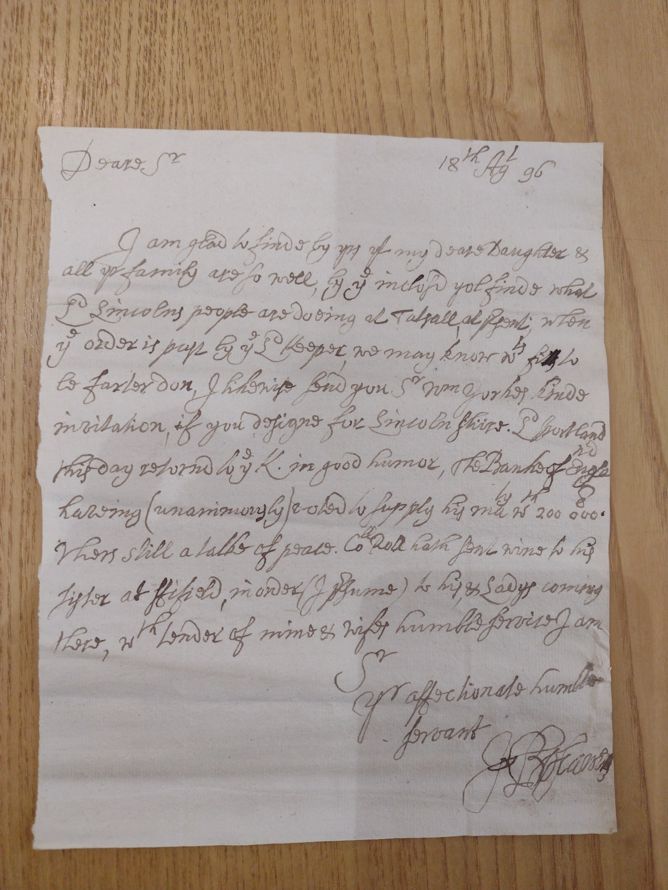 Deare Sr 18th Agt 96
I am glad to finde by yrs yt my deare Daughter &
all yr family are so well, by ye inclos'd yol finde what
Ld Lincolns people are doeing at Tatsall, at psent, when
ye order is past by ye Ld keeper, we may know wts fitt to
be farter don, I likewise send you Sr Wm Yorkes kinde
invitation, if you designe for Lincoln shire. Ld Portland
this day retornd to ye K. in good humor, The Banke of England
haveing (unanimously) voted to supply his maty wth 200 000.
Thers still a talke of peace. Coll Roll hath sent wine to his
sister at in order (I psume) to his, & Ladys coming
there, wth tender of mine & wifes humble service I am
Sr
yr affectionate humble
servant